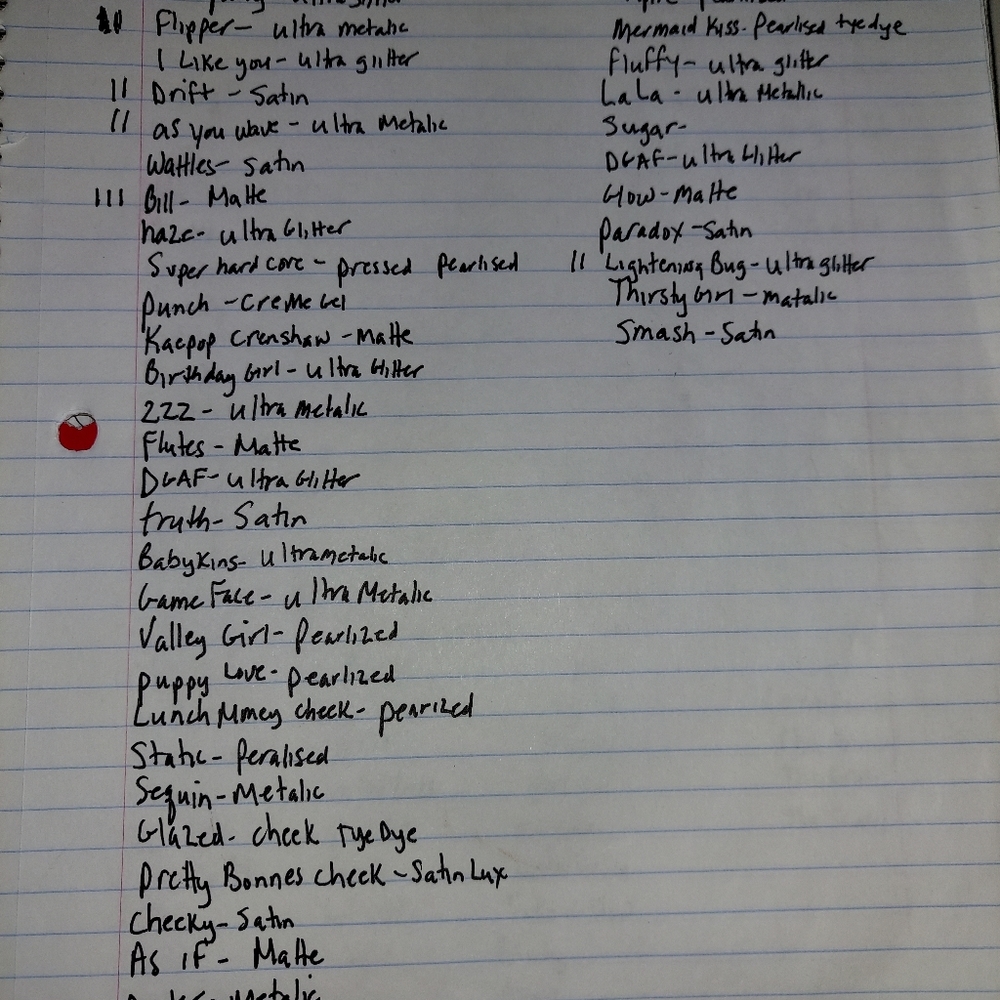 Flipper- ultra metalic
I Like you- ultra glitter
II Drift - Satin
II as you wave - ultra Metalic
Wattles- Satin
III Bill- Matte
haze- ultra Glitter
Super hard core - pressed pearlised
Punch - Creme Gel
Kaepop Crenshaw - Matte
Birthday Girl- ultra Glitter
ZZZ - ultra metalic
Flutes - Matte
DGAF- ultra Glitter
truth- Satin
BabyKins- ultrametalic
Game Face - ultra Metalic
Valley Girl- Pearlized
puppy Love- pearlized
Lunch Mmey check- pearized
Static- Peralised
Sequin- Metalic
Glazed- cheek Tye Dye
Pretty Bonnes check - Satin Lux
Cheeky- Satin
As if - Matte
Metalic
Mermaid Kiss- Pearlised tye dye
Fluffy- ultra glitter
LaLa - ultra Metallic
Sugar-
DGAF- ultra Glitter
Glow- Matte
paradox - Satin
II Lightening Bug- ultra glitter
Thirsty Girl - matalic
Smash - Satin